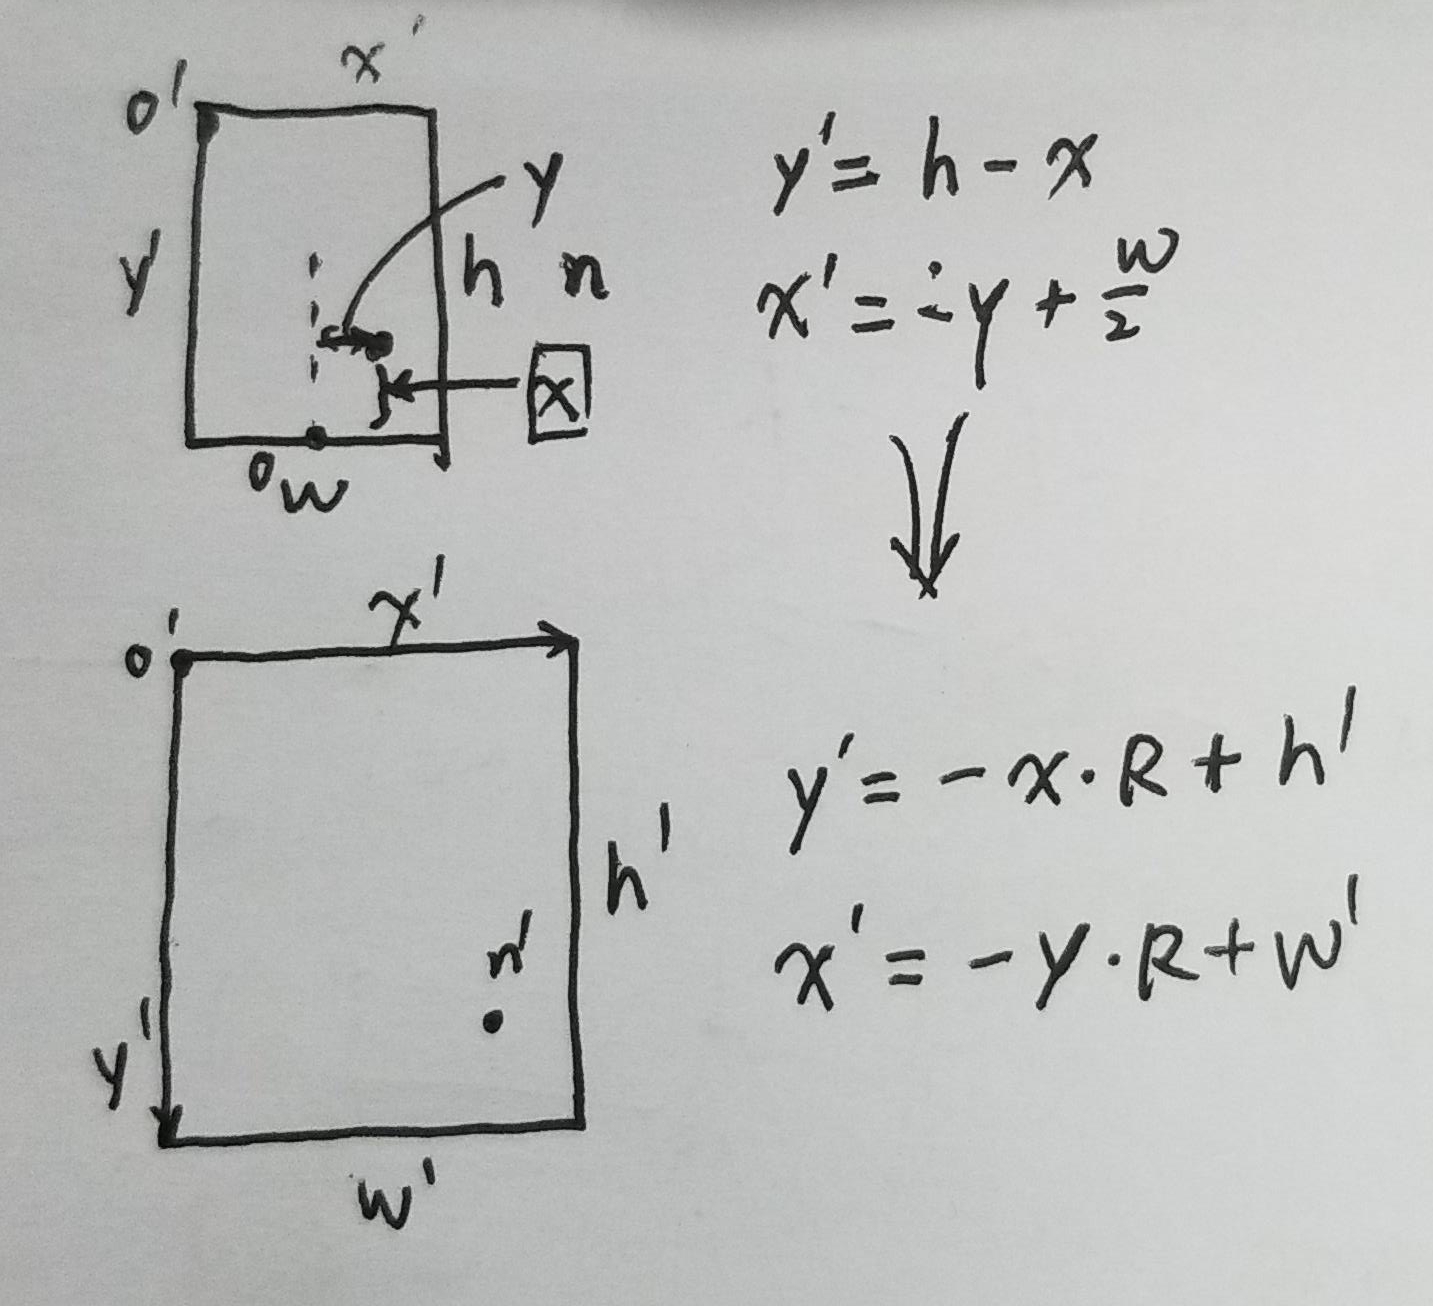 x'
o'
y
y'
h n
x
o
w
y' = h - x
x' = -y + w/2
x'
o'
h'
n'
y'
w'
y' = - x · R + h'
x' = - y · R + w'